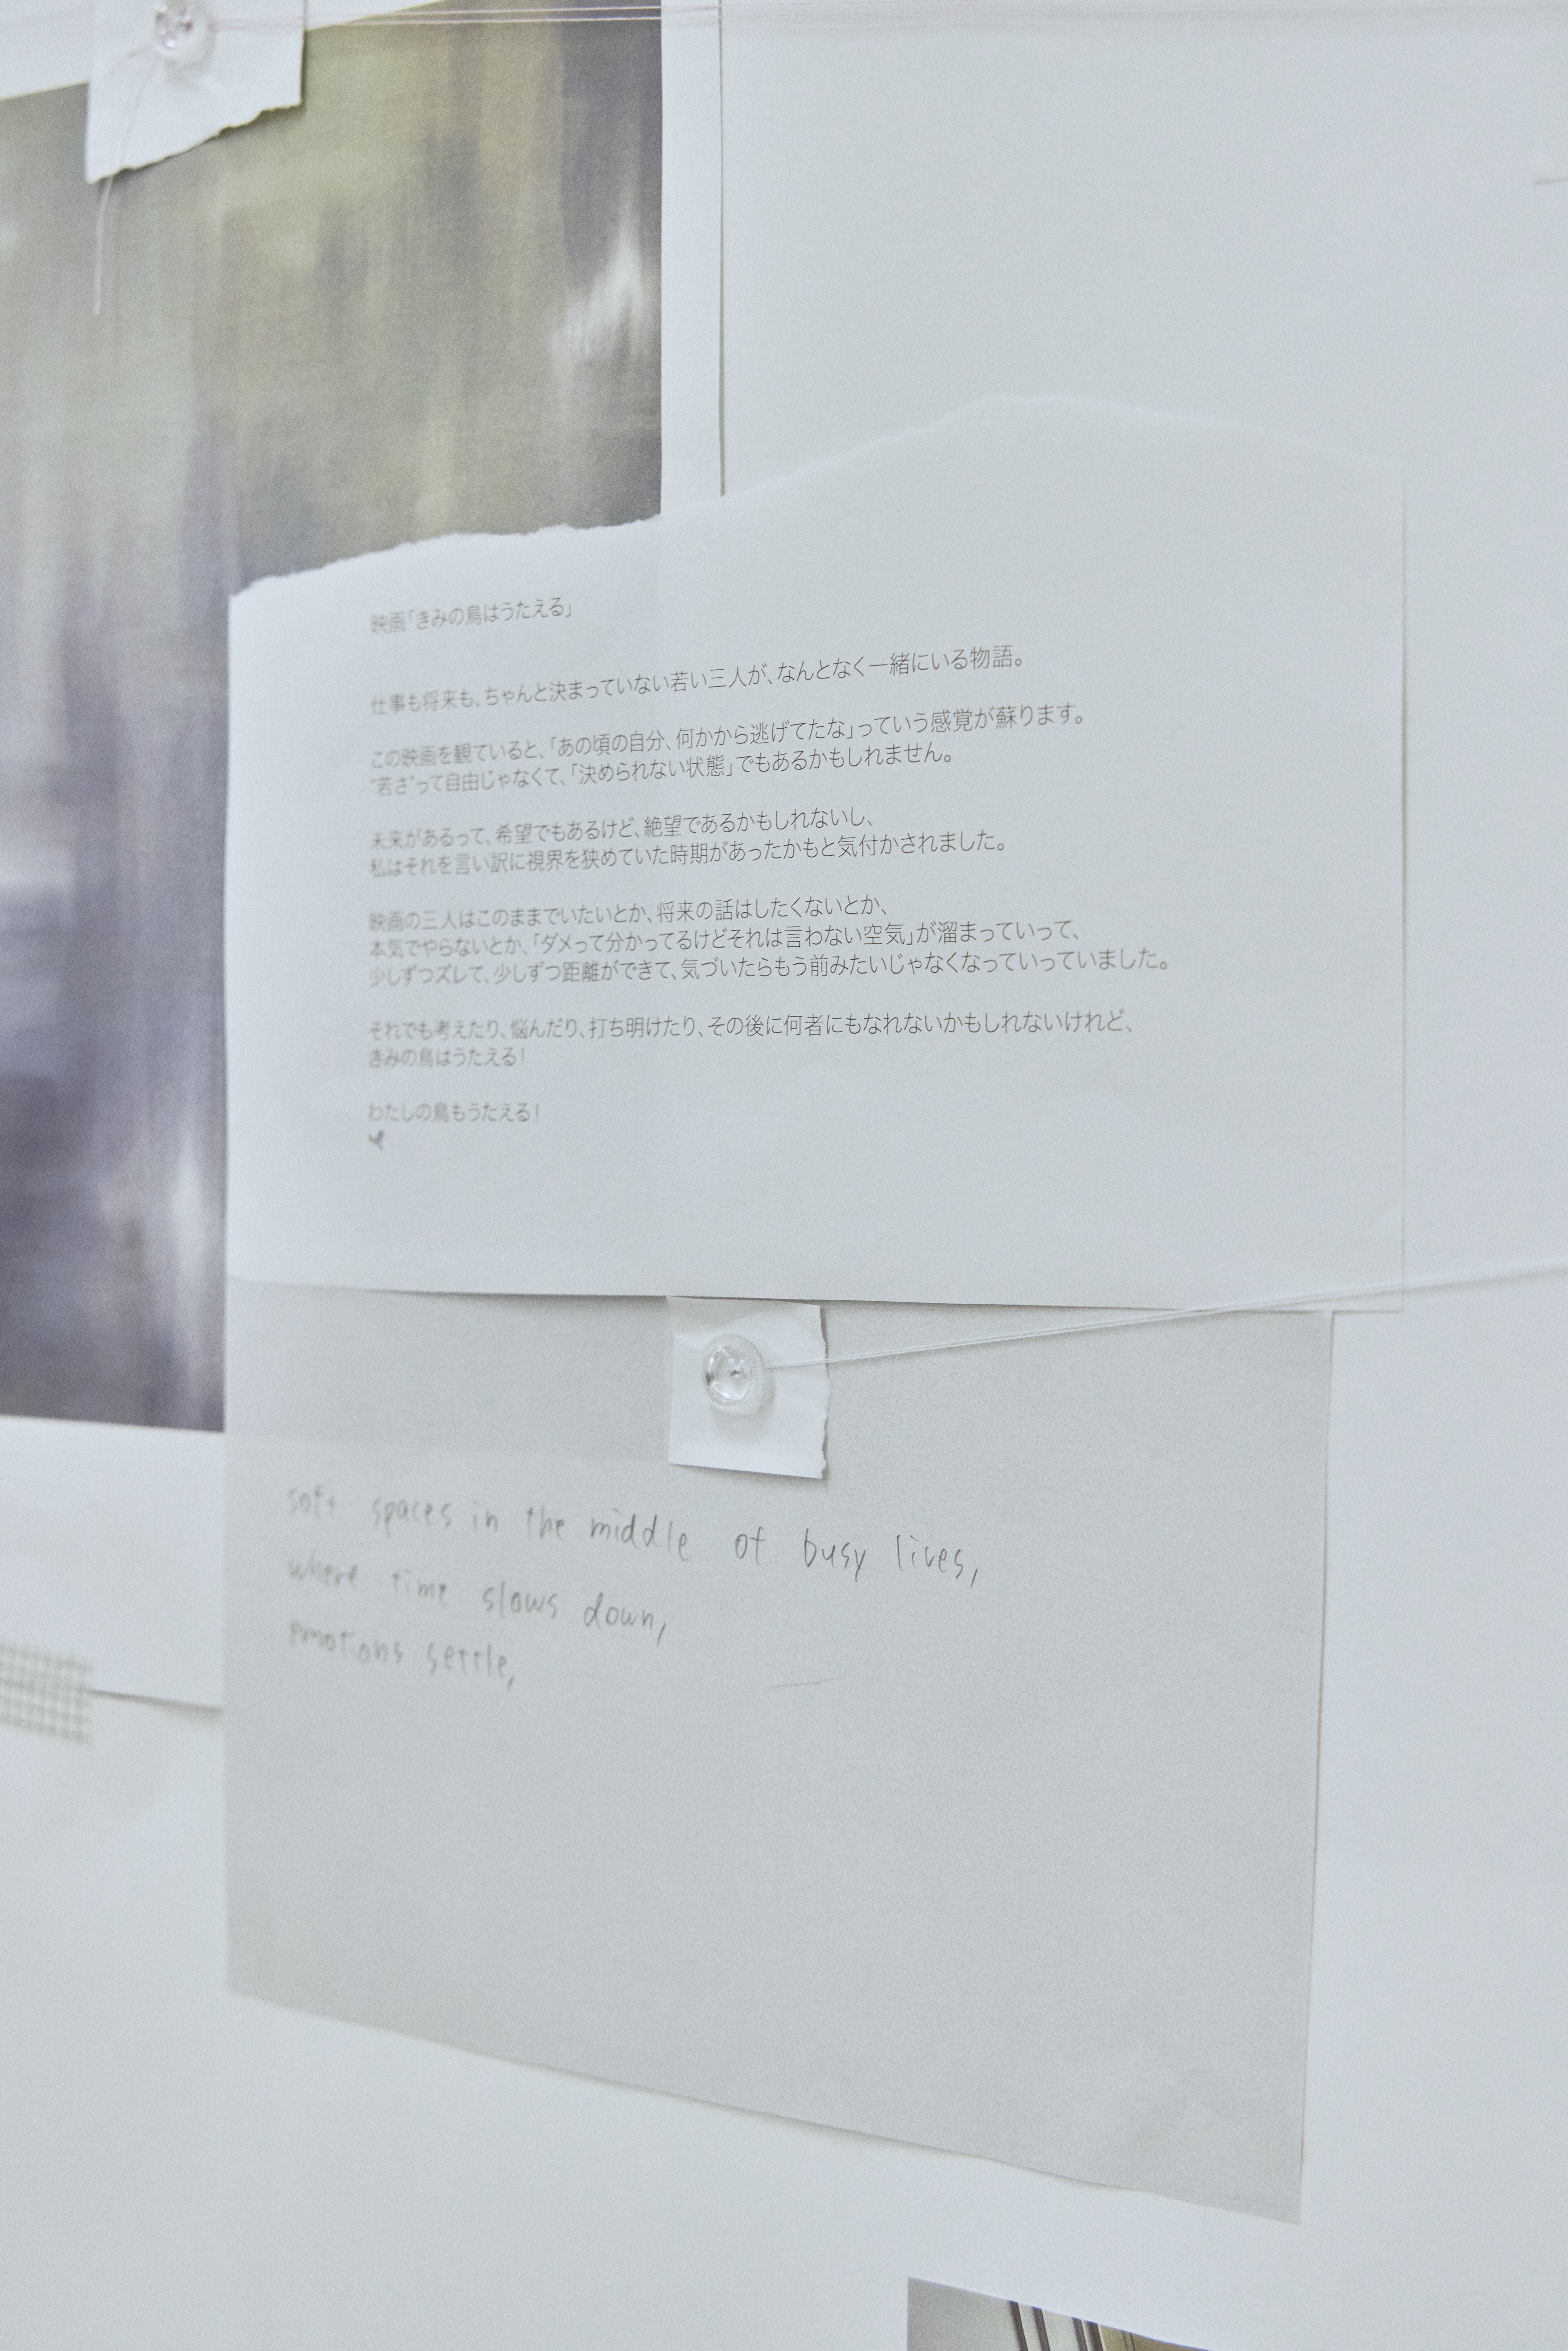 映画「きみの鳥はうたえる」
仕事も将来も、ちゃんと決まっていない若い三人が、なんとなく一緒にいる物語。
この映画を観ていると、「あの頃の自分、何かから逃げてたな」っていう感覚が蘇ります。
“若さ”って自由じゃなくて、「決められない状態」でもあるかもしれません。
未来があるって、希望でもあるけど、絶望であるかもしれないし、
私はそれを言い訳に視界を狭めていた時期があったかもと気付かされました。
映画の三人はこのままでいたいとか、将来の話はしたくないとか、
本気でやらないとか、「ダメって分かってるけどそれは言わない空気」が溜まっていって、
少しずつズレて、少しずつ距離ができて、気づいたらもう前みたいじゃなくなっていっていました。
それでも考えたり、悩んだり、打ち明けたり、その後に何者にもなれないかもしれないけれど、
きみの鳥はうたえる!
わたしの鳥もうたえる!
soft spaces in the middle of busy lives,
where time slows down,
emotions settle,